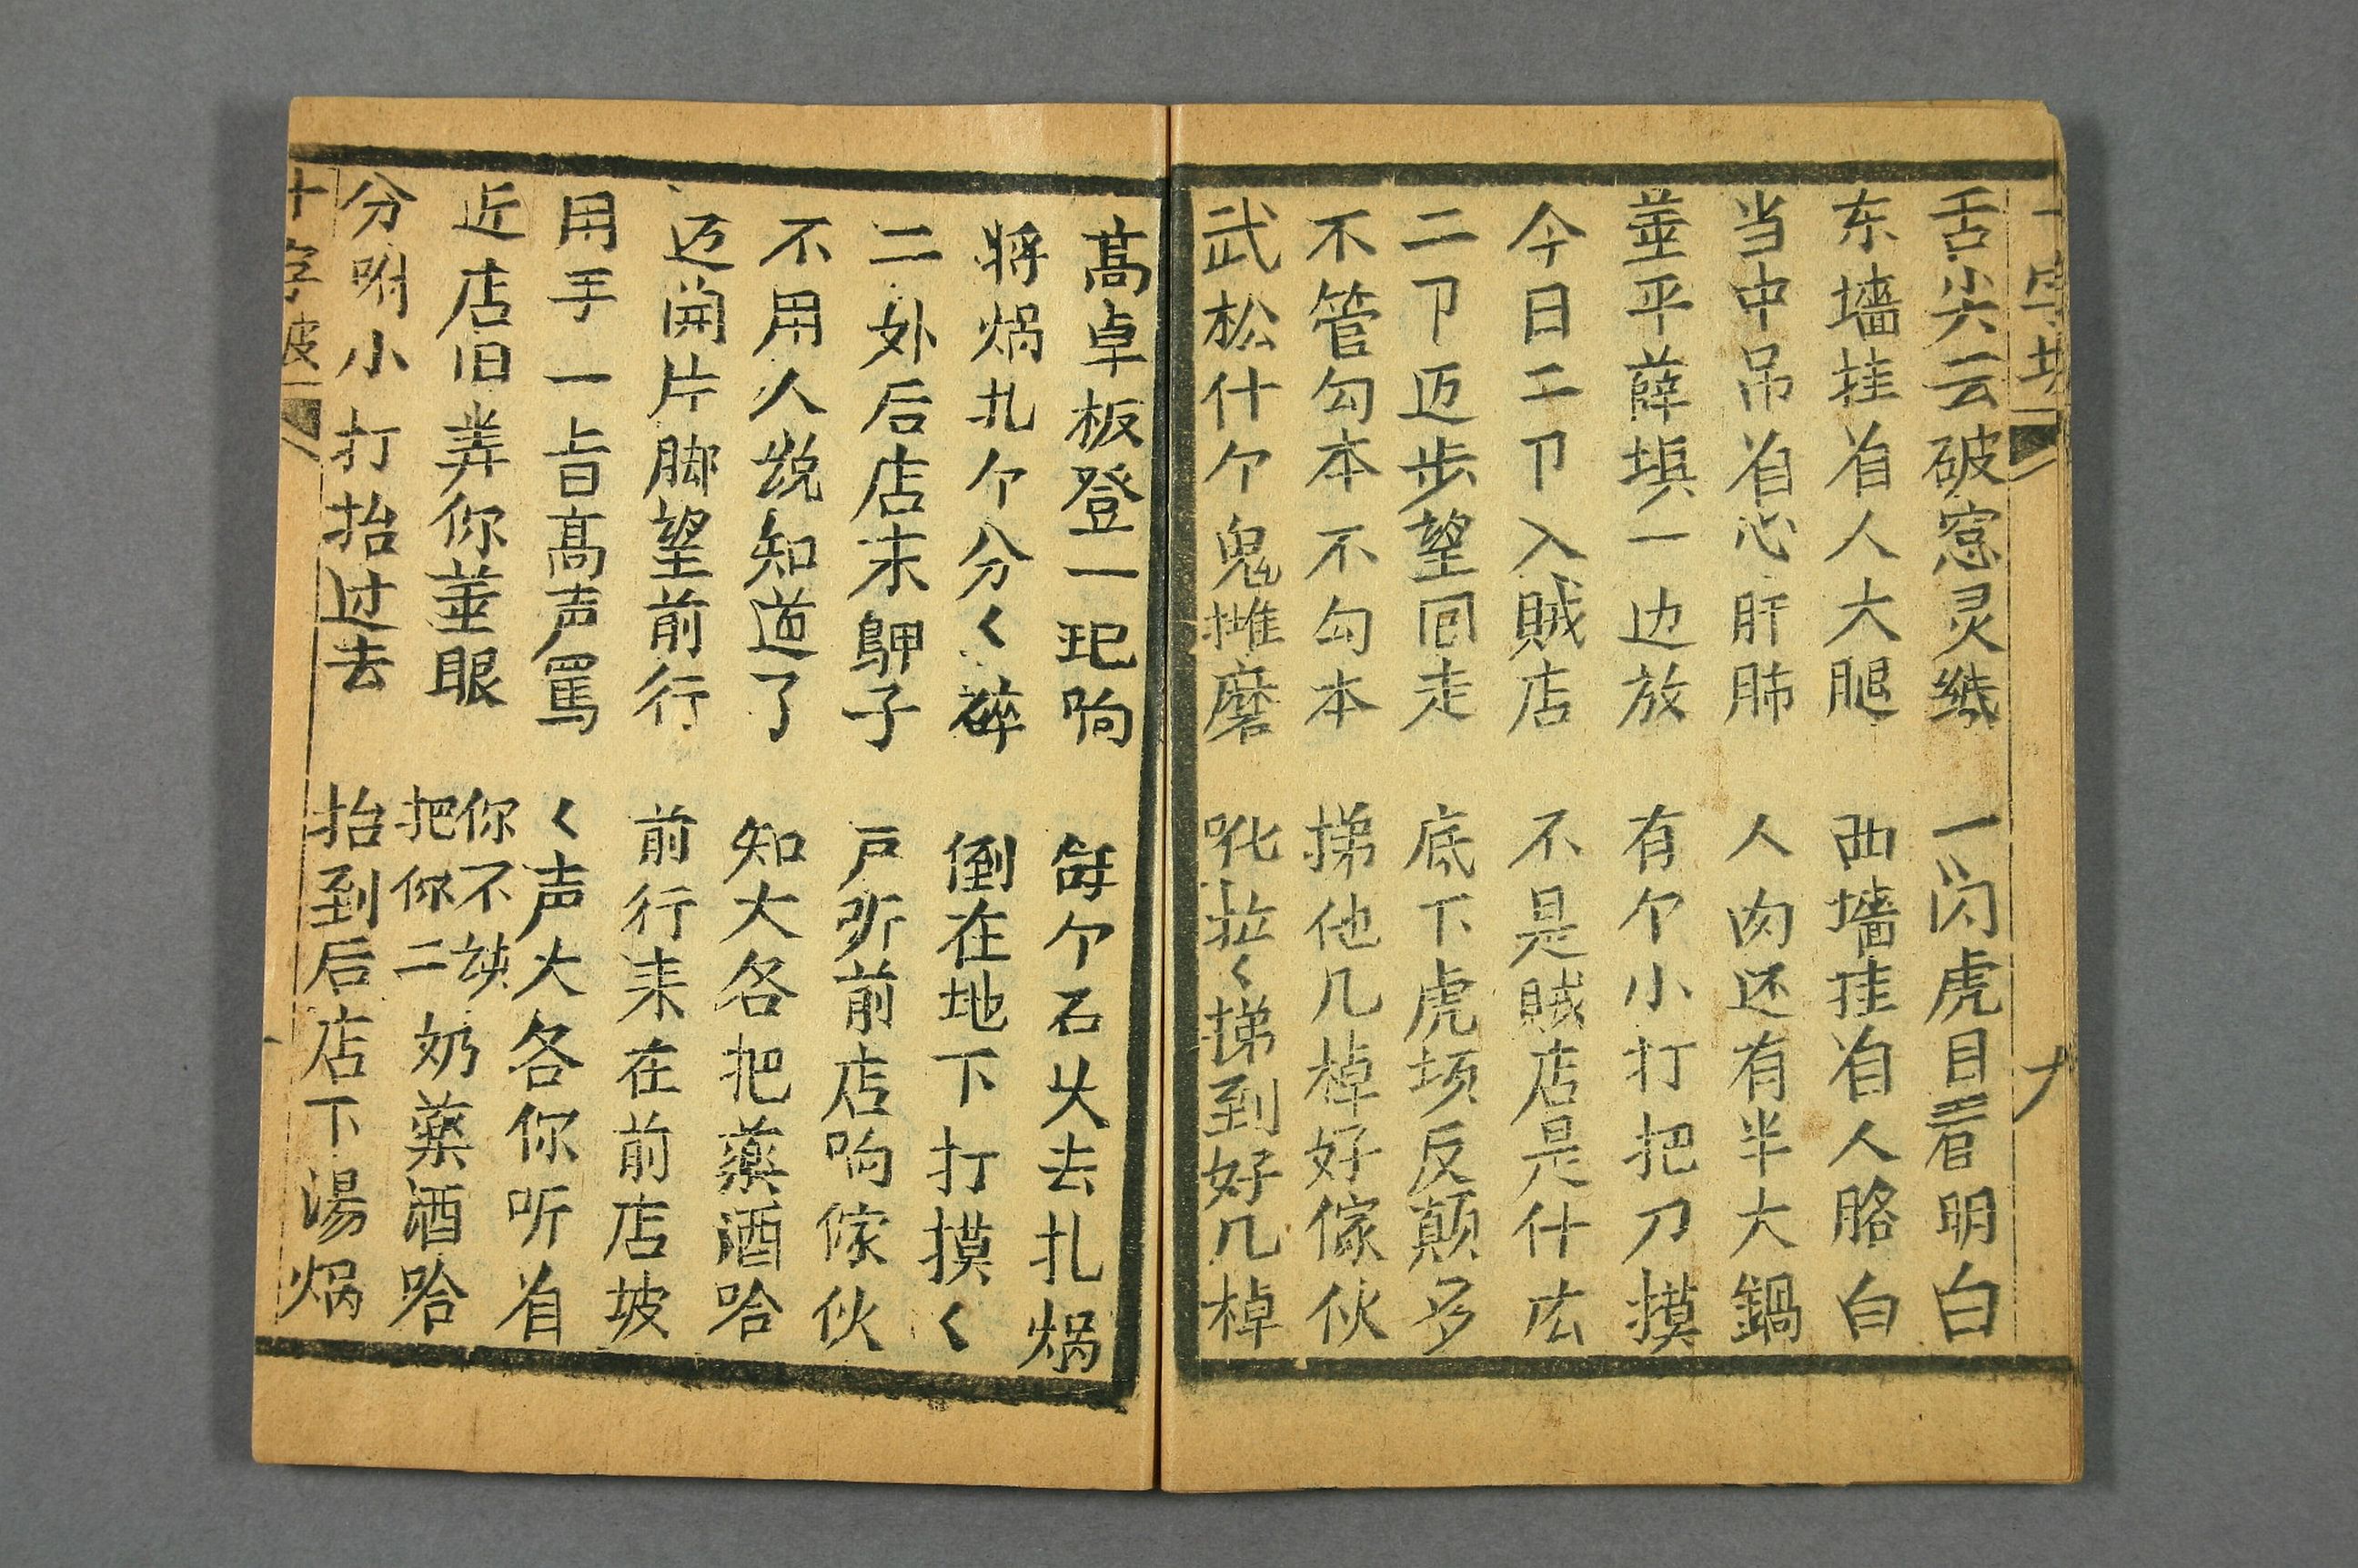 十字坡
九
舌尖云破窓灵纸 一闪虎目看明白
东墙挂自人大腿 西墙挂自人胳白
当中吊自心肝肺 人肉还有半大鍋
并平薛填一边放 有个小打把刀摸
今日二卩入贼店 不是贼店是什庅
二卩迈步望回走 底下虎项反颠多
不管勾本不勾本 挮他几棹好傢伙
武松什个鬼推磨 吪拉く挮到好几棹
髙卓板登一玘响 每个石火去扎煱
将煱扎个分く碎 倒在地下打摸く
二外后店末鴨子 戸听前店响傢伙
不用人说知道了 知大各把薬酒哈
迈開片脚望前行 前行来在前店坡
用手一旨髙声罵 く声大各你听自
近店旧弄你并眼 你不喫把你二奶薬酒哈
分咐小打抬过去 抬到后店下湯煱
十字坡